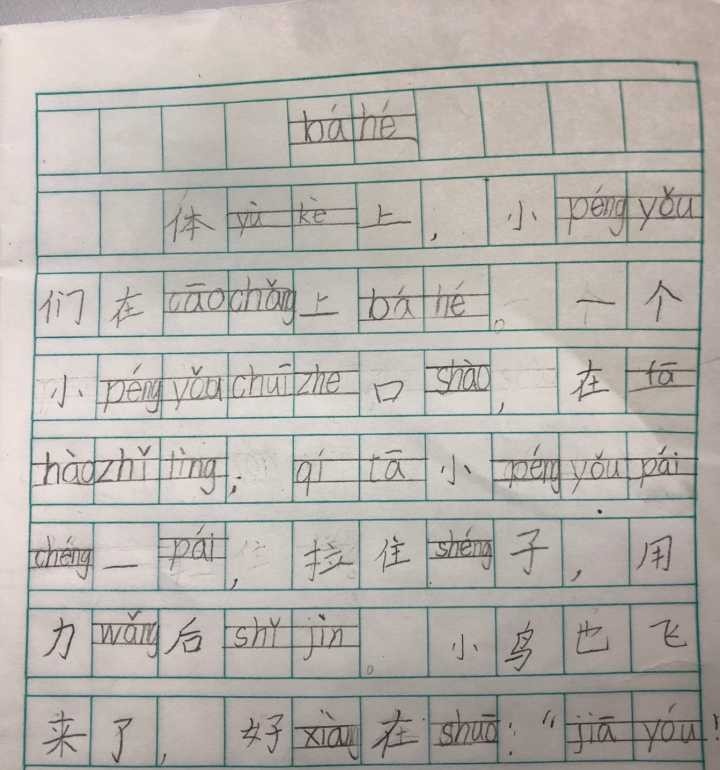 bá hé
体 yù kè 上，小 péng yǒu
们在 cāo chǎng 上 bá hé。一个
小 péng yǒu chuī zhe 口 shào，在 fā
hào zhǐ lìng；qí tā 小 péng yǒu pái
chéng 一 pái，拉住 shéng 子，用
力 wǎng 后 shǐ jìn。小鸟也飞
来了，好 xiàng 在 shuō：“jiā yóu！